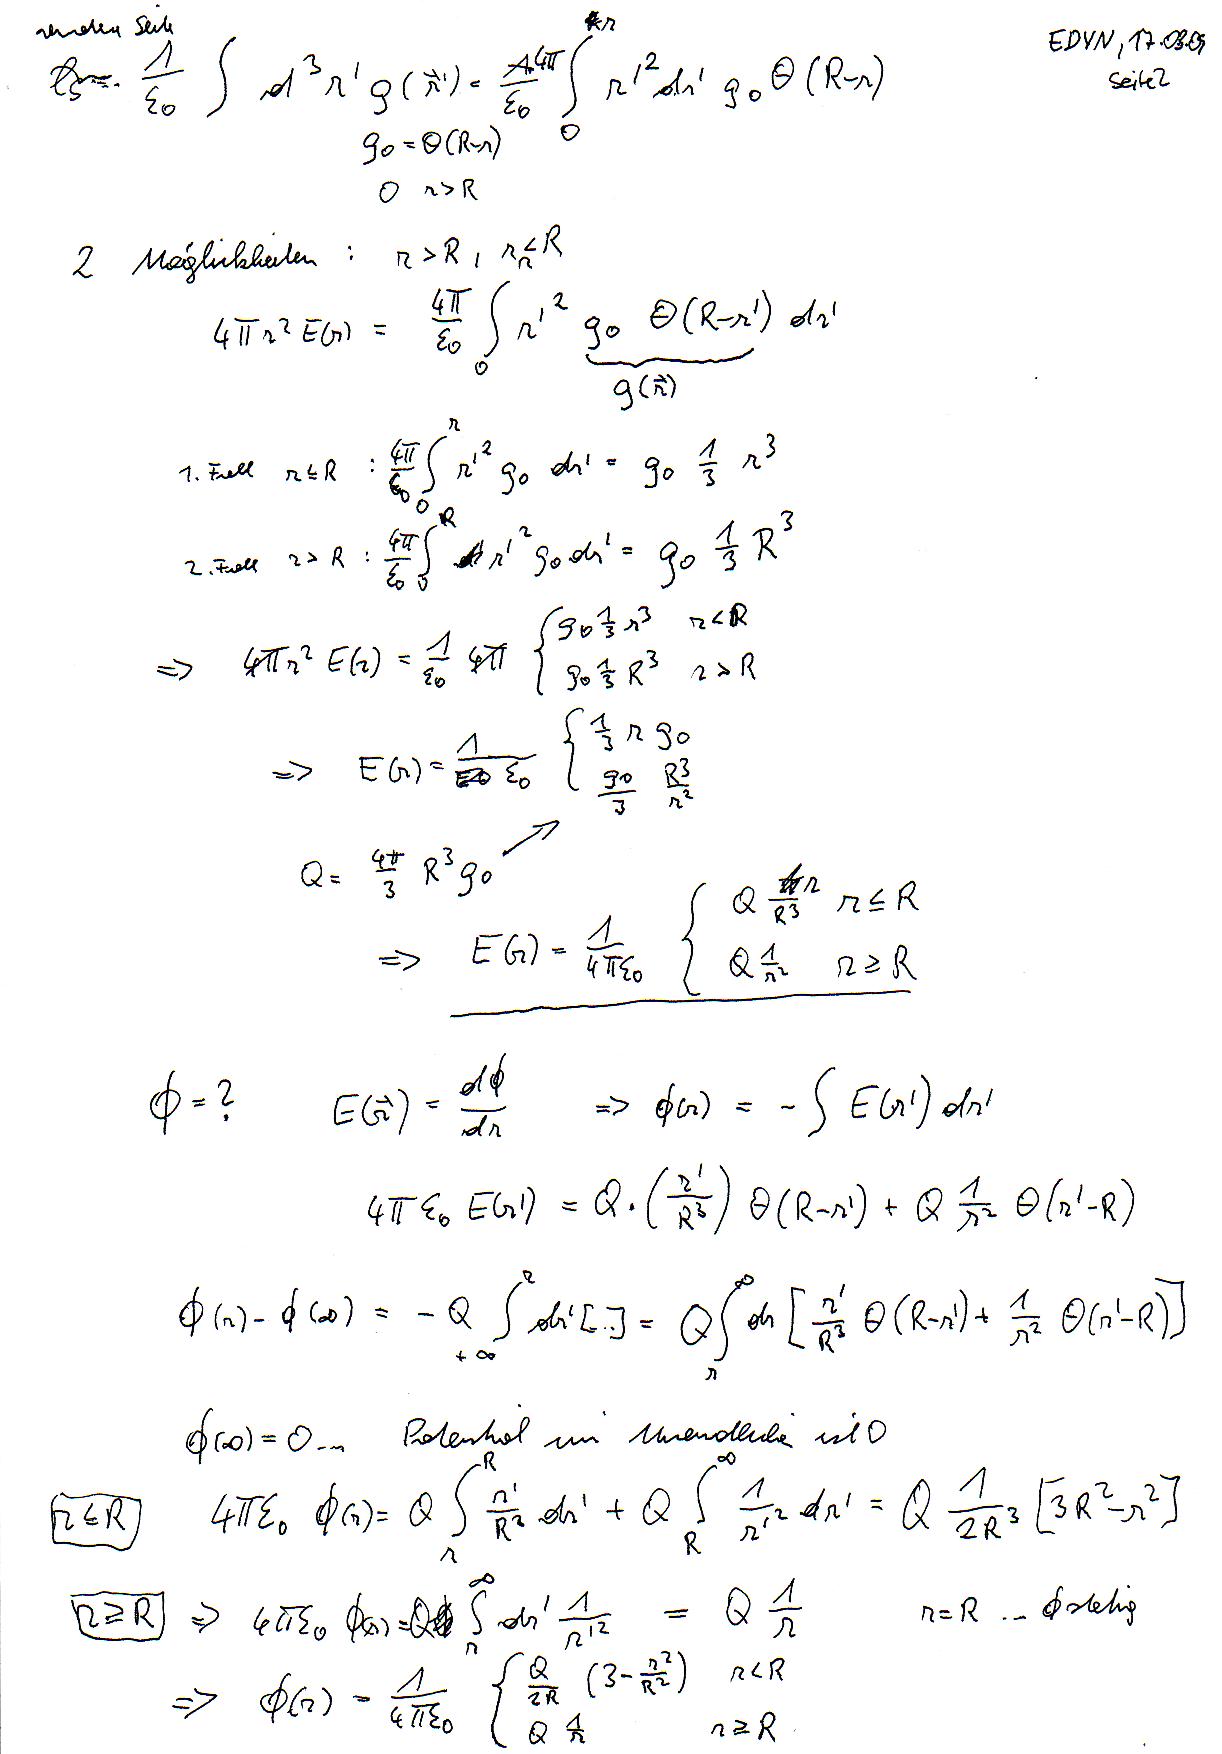 EDYN, 17.03.09
Seite 2
Seite
1/ε₀ ∫ d³r' ρ(r⃗') = 4π/ε₀ ∫₀^r r'² dr' ρ₀ Θ(R-r)
ρ₀ = Θ(R-r)
0 r>R
2 Möglichkeiten : r > R , r ≤ R
4πr² E(r) = 4π/ε₀ ∫₀ r'² ρ₀ Θ(R-r') dr'
ρ(r⃗)
1. Fall r≤R : 4π/ε₀ ∫₀^r r'² ρ₀ dr' = ρ₀ 1/3 r³
2. Fall r > R : 4π/ε₀ ∫₀^R r'² ρ₀ dr' = ρ₀ 1/3 R³
=> 4πr² E(r) = 1/ε₀ 4π { ρ₀ 1/3 r³ r<R
ρ₀ 1/3 R³ r > R
=> E(r) = 1/ε₀ { 1/3 r ρ₀
ρ₀/3 R³/r²
Q = 4π/3 R³ ρ₀
=> E(r) = 1/4πε₀ { Q r/R³ r ≤ R
Q 1/r² r ≥ R
ϕ = ? E(r⃗) = dϕ/dr => ϕ(r) = - ∫ E(r') dr'
4πε₀ E(r') = Q · (r'/R³) Θ(R-r') + Q 1/r² Θ(r'-R)
ϕ(r) - ϕ(∞) = - Q ∫₊∞^r dr' [..] = Q ∫_r^∞ dr [ r'/R³ Θ(R-r') + 1/r² Θ(r'-R) ]
ϕ(∞) = 0 ... Potential im Unendlichen ist 0
r≤R 4πε₀ ϕ(r) = Q ∫_r^R r'/R³ dr' + Q ∫_R^∞ 1/r'² dr' = Q 1/2R³ [3R² - r²]
r≥R => 4πε₀ ϕ(r) = Q ∫_r^∞ dr' 1/r'² = Q 1/r r=R ... ϕ stetig
=> ϕ(r) = 1/4πε₀ { Q/2R (3 - r²/R²) r<R
Q 1/r r ≥ R